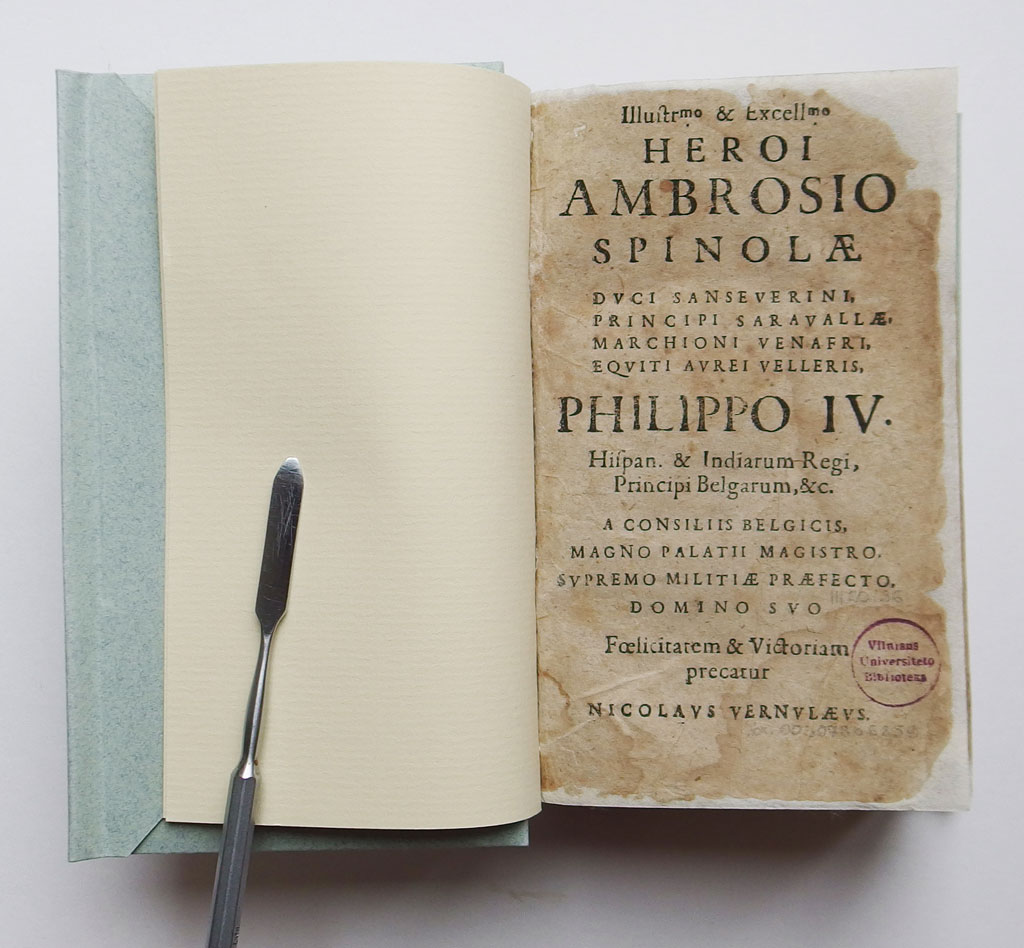 Illuſtrmo & Excellmo
HEROI
AMBROSIO
SPINOLÆ
DVCI SANSEVERINI,
PRINCIPI SARAVALLÆ,
MARCHIONI VENAFRI,
EQVITI AVREI VELLERIS,
PHILIPPO IV.
Hiſpan. & Indiarum Regi,
Principi Belgarum, &c.
A CONSILIIS BELGICIS,
MAGNO PALATII MAGISTRO,
SVPREMO MILITIÆ PRÆFECTO,
DOMINO SVO
Fœlicitatem & Victoriam
precatur
NICOLAVS VERNVLÆVS.
Vilniaus
Universiteto
Biblioteka